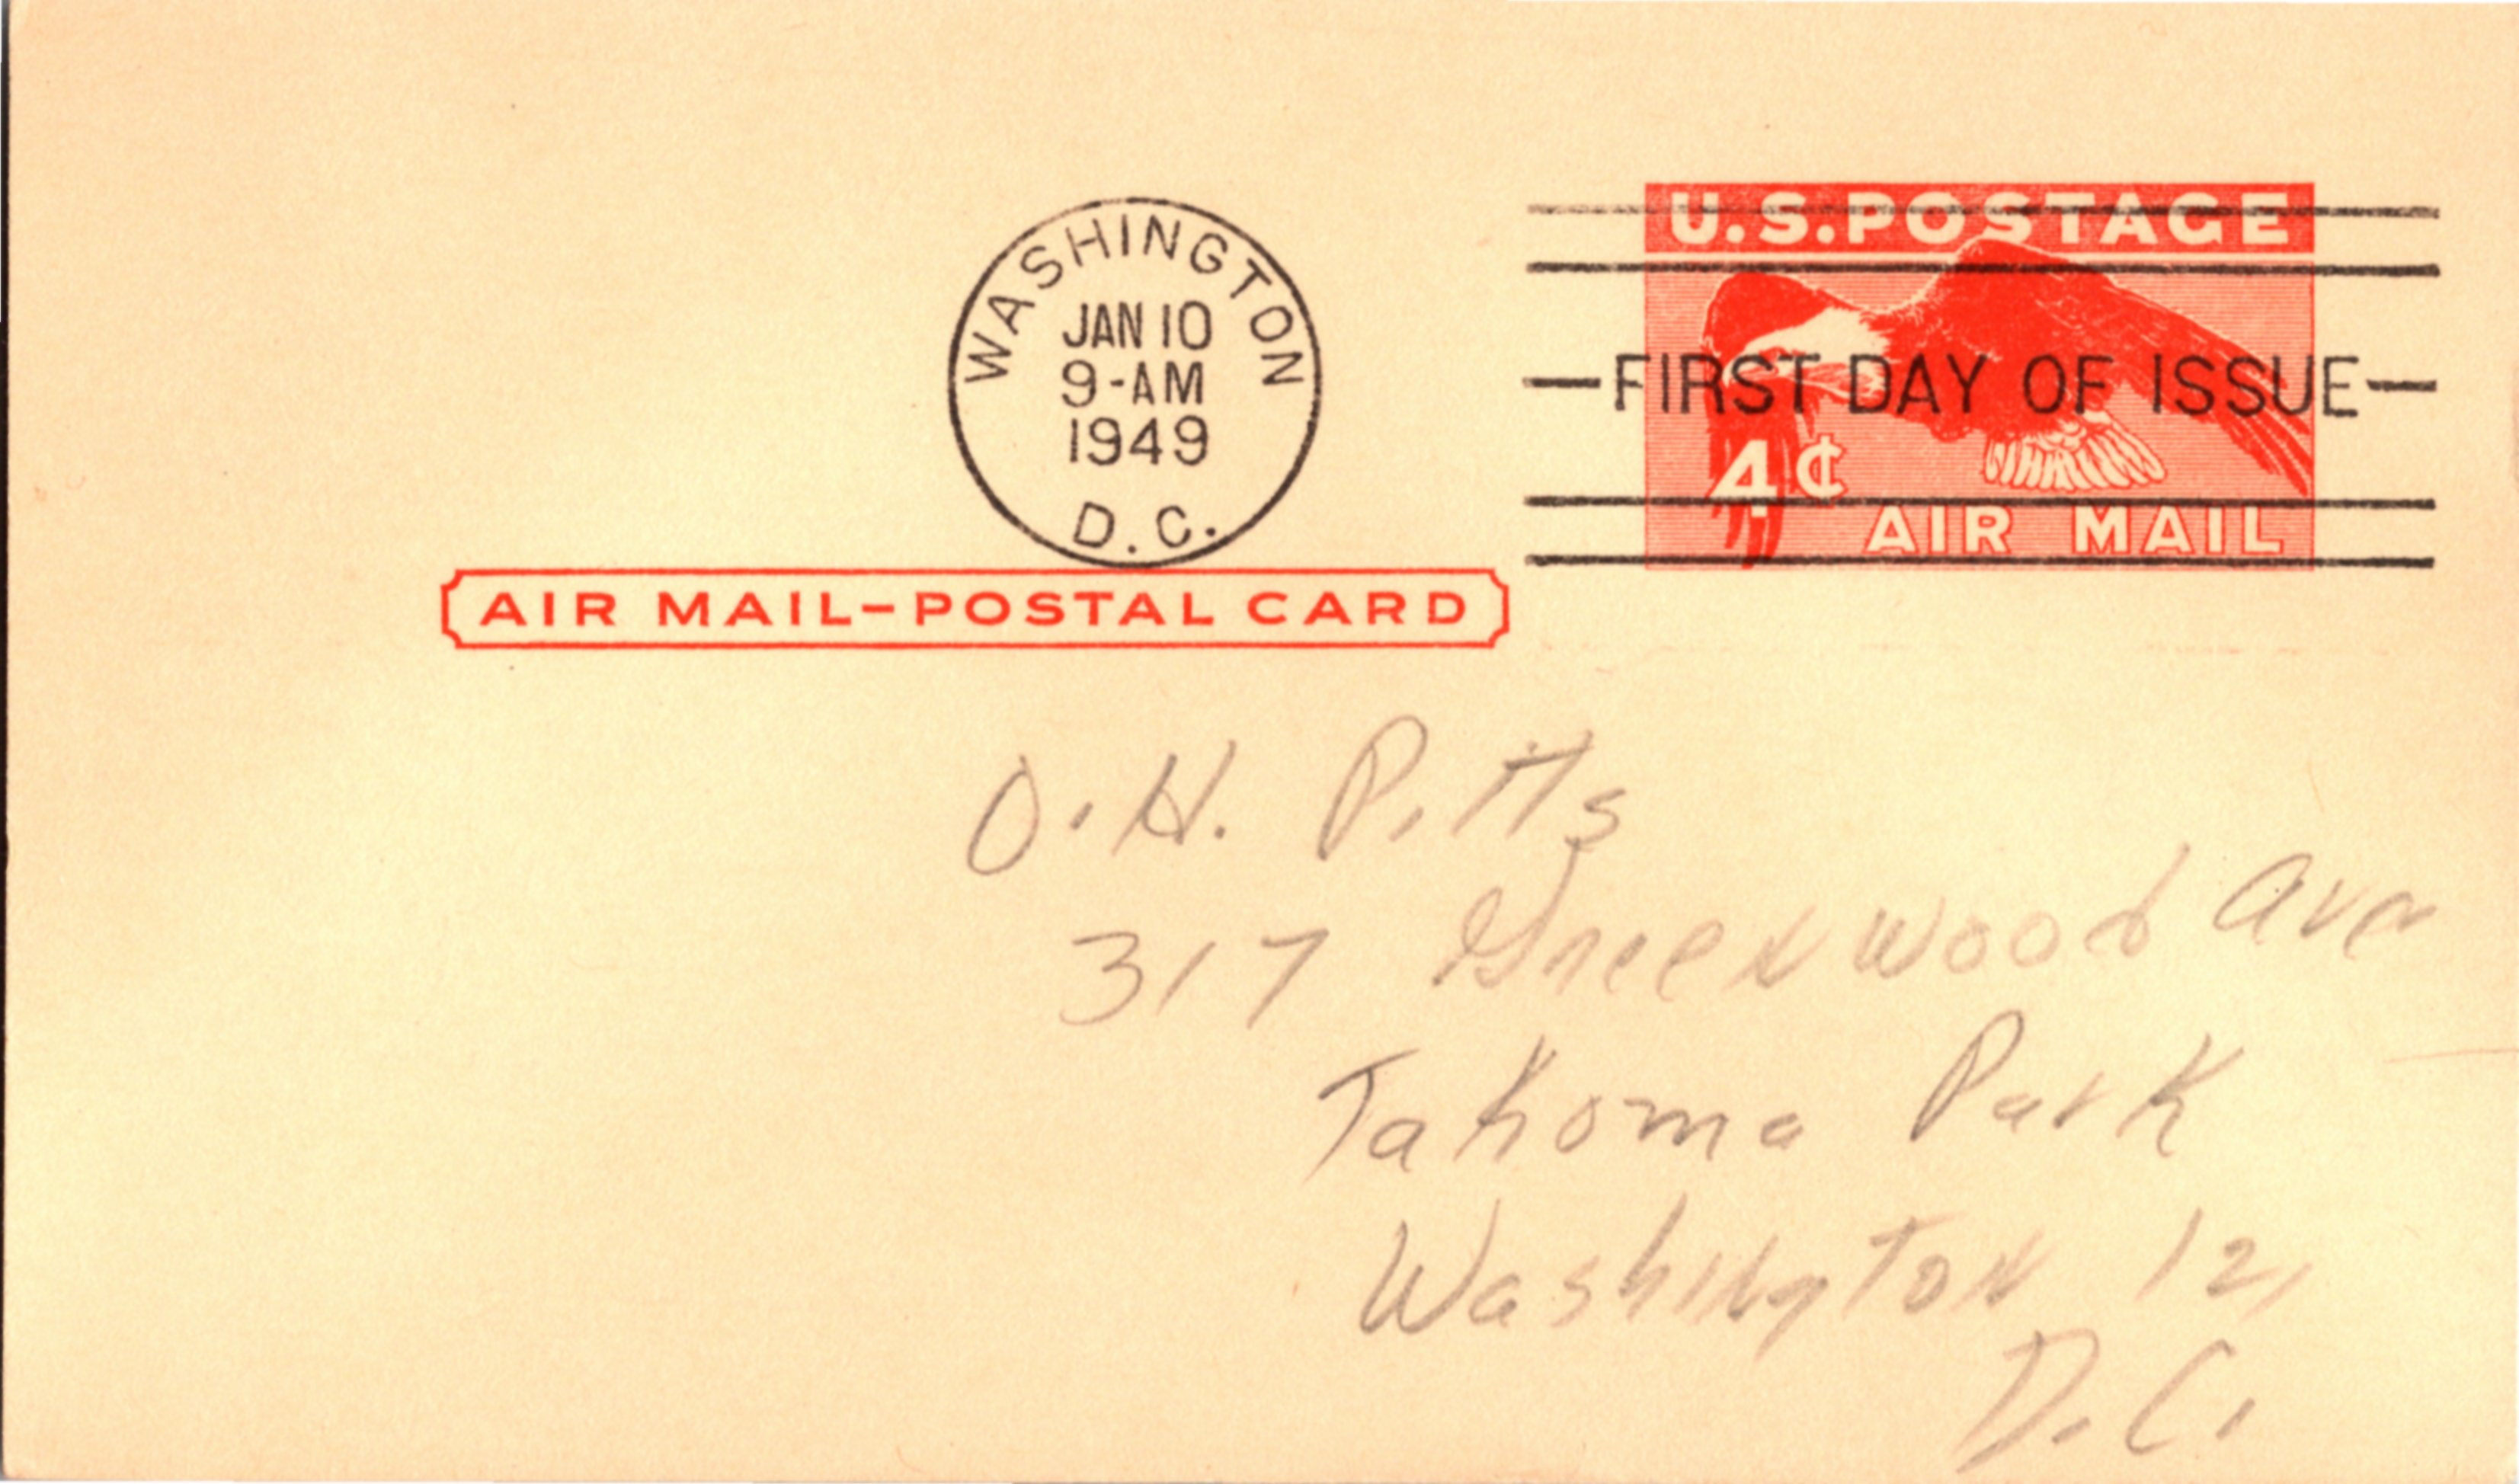 WASHINGTON
JAN 10
9-AM
1949
D.C.
U.S. POSTAGE
FIRST DAY OF ISSUE
4¢
AIR MAIL
AIR MAIL-POSTAL CARD
O. H. Pitts
317 Greenwood Ave
Takoma Park
Washington 12,
D.C.